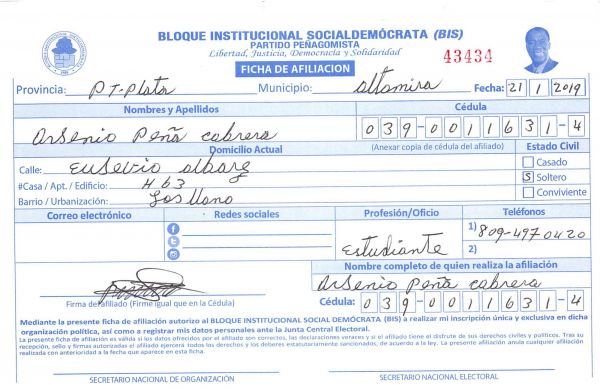 BLOQUE INSTITUCIONAL SOCIALDEMÓCRATA (BIS)
PARTIDO PEÑAGOMISTA
Libertad, Justicia, Democracia y Solidaridad
43434
FICHA DE AFILIACION
Provincia: PT-Plata Municipio: altamira Fecha: 21/1/2019
Nombres y Apellidos Cédula
Arsenio Peña Cabrera 039-0011631-4
Domicilio Actual (Anexar copia de cédula del afiliado) Estado Civil
Calle: Eusevio albarez Casado
#Casa / Apt. / Edificio: H 63 S Soltero
Barrio / Urbanización: Los llano Conviviente
Correo electrónico Redes sociales Profesión/Oficio Teléfonos
1) 809-497 0420
Estudiante 2)
Nombre completo de quien realiza la afiliación
Arsenio Peña cabrera
Firma del afiliado (Firme igual que en la Cédula) Cédula: 039-0011631-4
Mediante la presente ficha de afiliación autorizo al BLOQUE INSTITUCIONAL SOCIAL DEMÓCRATA (BIS) a realizar mi inscripción única y exclusiva en dicha
organización política, así como a registrar mis datos personales ante la Junta Central Electoral.
La presente ficha de afiliación es válida si los datos ofrecidos por el afiliado son correctos, las declaraciones veraces y si el afiliado tiene el disfrute de sus derechos civiles y políticos. Tras su
recepción, sello y firmas autorizadas el afiliado ejercerá todos los derechos y los deberes estatutariamente sancionados, de acuerdo a la ley. La presente afiliación anula cualquier afiliación
realizada con anterioridad a la fecha que aparece en esta ficha.
SECRETARIO NACIONAL DE ORGANIZACIÓN SECRETARIO NACIONAL ELECTORAL